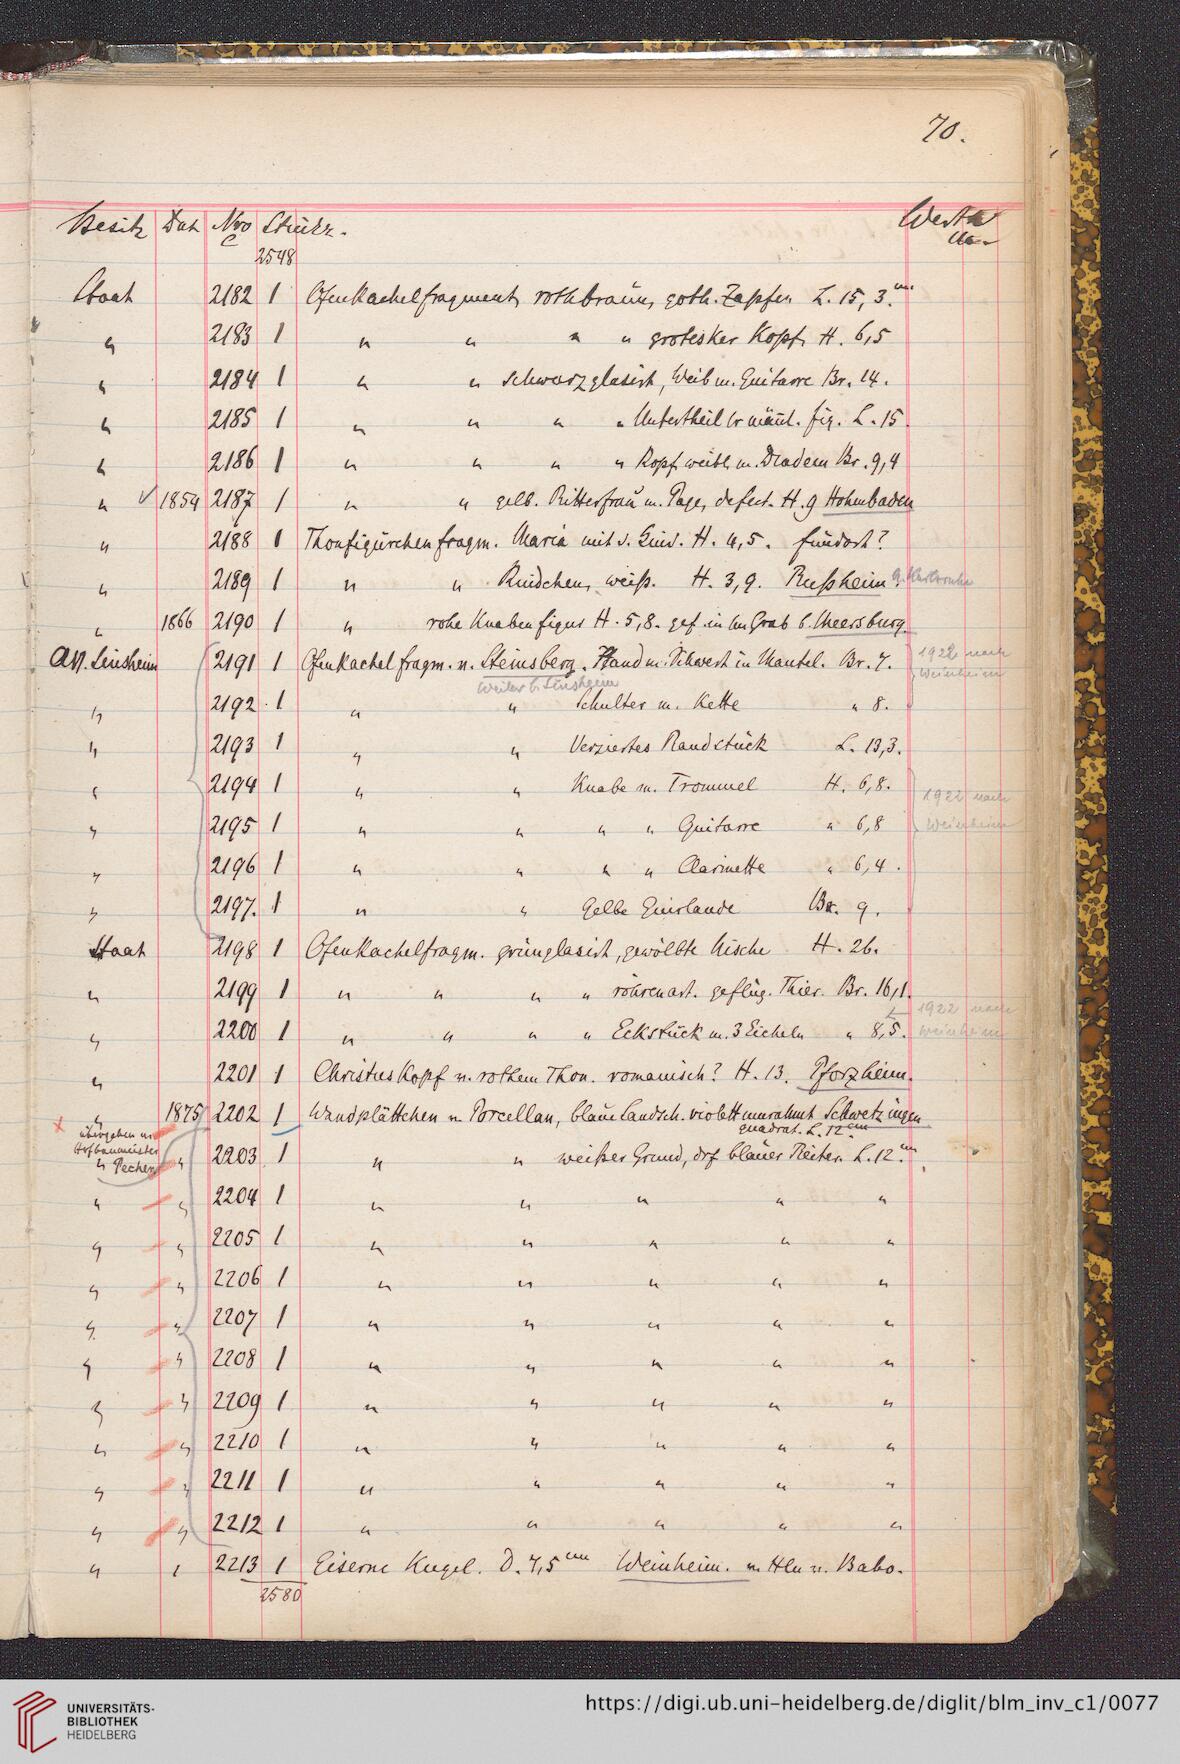 70.
Besitz Dat Nro Stückz. Werth
C M.
2548
Staat 2182 1 Ofenkachelfragment, rothbraun, goth. Zapfen L. 15,3.cm
" 2183 1 " " " " grotesker Kopf. H. 6,5
" 2184 1 " " schwarzglasirt, Weib m. Guitarre Br. 14.
" 2185 1 " " " " Untertheil männl. fig. L. 15.
" 2186 1 " " " " Kopf weibl. m. Diadem Br. 9,4
" ✓ 1854 2187 1 " " gelb. Ritterfrau m. Page, defect. H. 9 Hohenbaden
" 2188 1 Thonfigürchenfragm. Maria mit d. Kind. H. 4,5. fundort?
" 2189 1 " " Kindchen, weiß. H. 3,9. Rußheim A. Karlsruhe
" 1866 2190 1 " rohe Knabenfigur H. 5,8. gef. in Grab b. Meersburg.
AV. Sinsheim 2191 1 Ofenkachelfragm. v. Steinsberg. Hand m. Schwert in Mantel. Br. 7. 1922 nach
Weiler b. Sinsheim Weinheim
" 2192 1 " " Schulter m. Kette " 8.
" 2193 1 " " Verziertes Randstück L. 13,3.
" 2194 1 " " Knabe m. Trommel H. 6,8. 1922 nach
" 2195 1 " " " " Guitarre " 6,8 Weinheim
" 2196 1 " " " " Clarinette " 6,4.
" 2197. 1 " " Gelbe Guirlande Br. 9.
Staat 2198 1 Ofenkachelfragm. grünglasirt, gewölbte Nische H. 26.
" 2199 1 " " " " röhrenart. geflüg. Thier. Br. 16,1.
1922 nach
" 2200 1 " " " " Eckstück m. 3 Eicheln " 8,5. Weinheim
" 2201 1 Christuskopf v. rothem Thon. romanisch? H. 13. Pforzheim.
" 1875 2202 1 Wandplättchen v. Porcellan, blaue Landsch. violett umrahmt Schwetzingen
übergeben v. quadrat. L. 12 cm
Hofbaumeister
" Pecher " 2203 1 " " weißer Grund, drf blauer Reiter. L. 12.cm
" " 2204 1 " " " " "
" " 2205 1 " " " " "
" " 2206 1 " " " " "
" " 2207 1 " " " " "
" " 2208 1 " " " " "
" " 2209 1 " " " " "
" " 2210 1 " " " " "
" " 2211 1 " " " " "
" " 2212 1 " " " " "
" " 2213 1 Eiserne Kugel. D. 7,5 cm Weinheim. v. Hln v. Babo.
2580
UNIVERSITÄTS-
BIBLIOTHEK
HEIDELBERG
https://digi.ub.uni-heidelberg.de/diglit/blm_inv_c1/0077